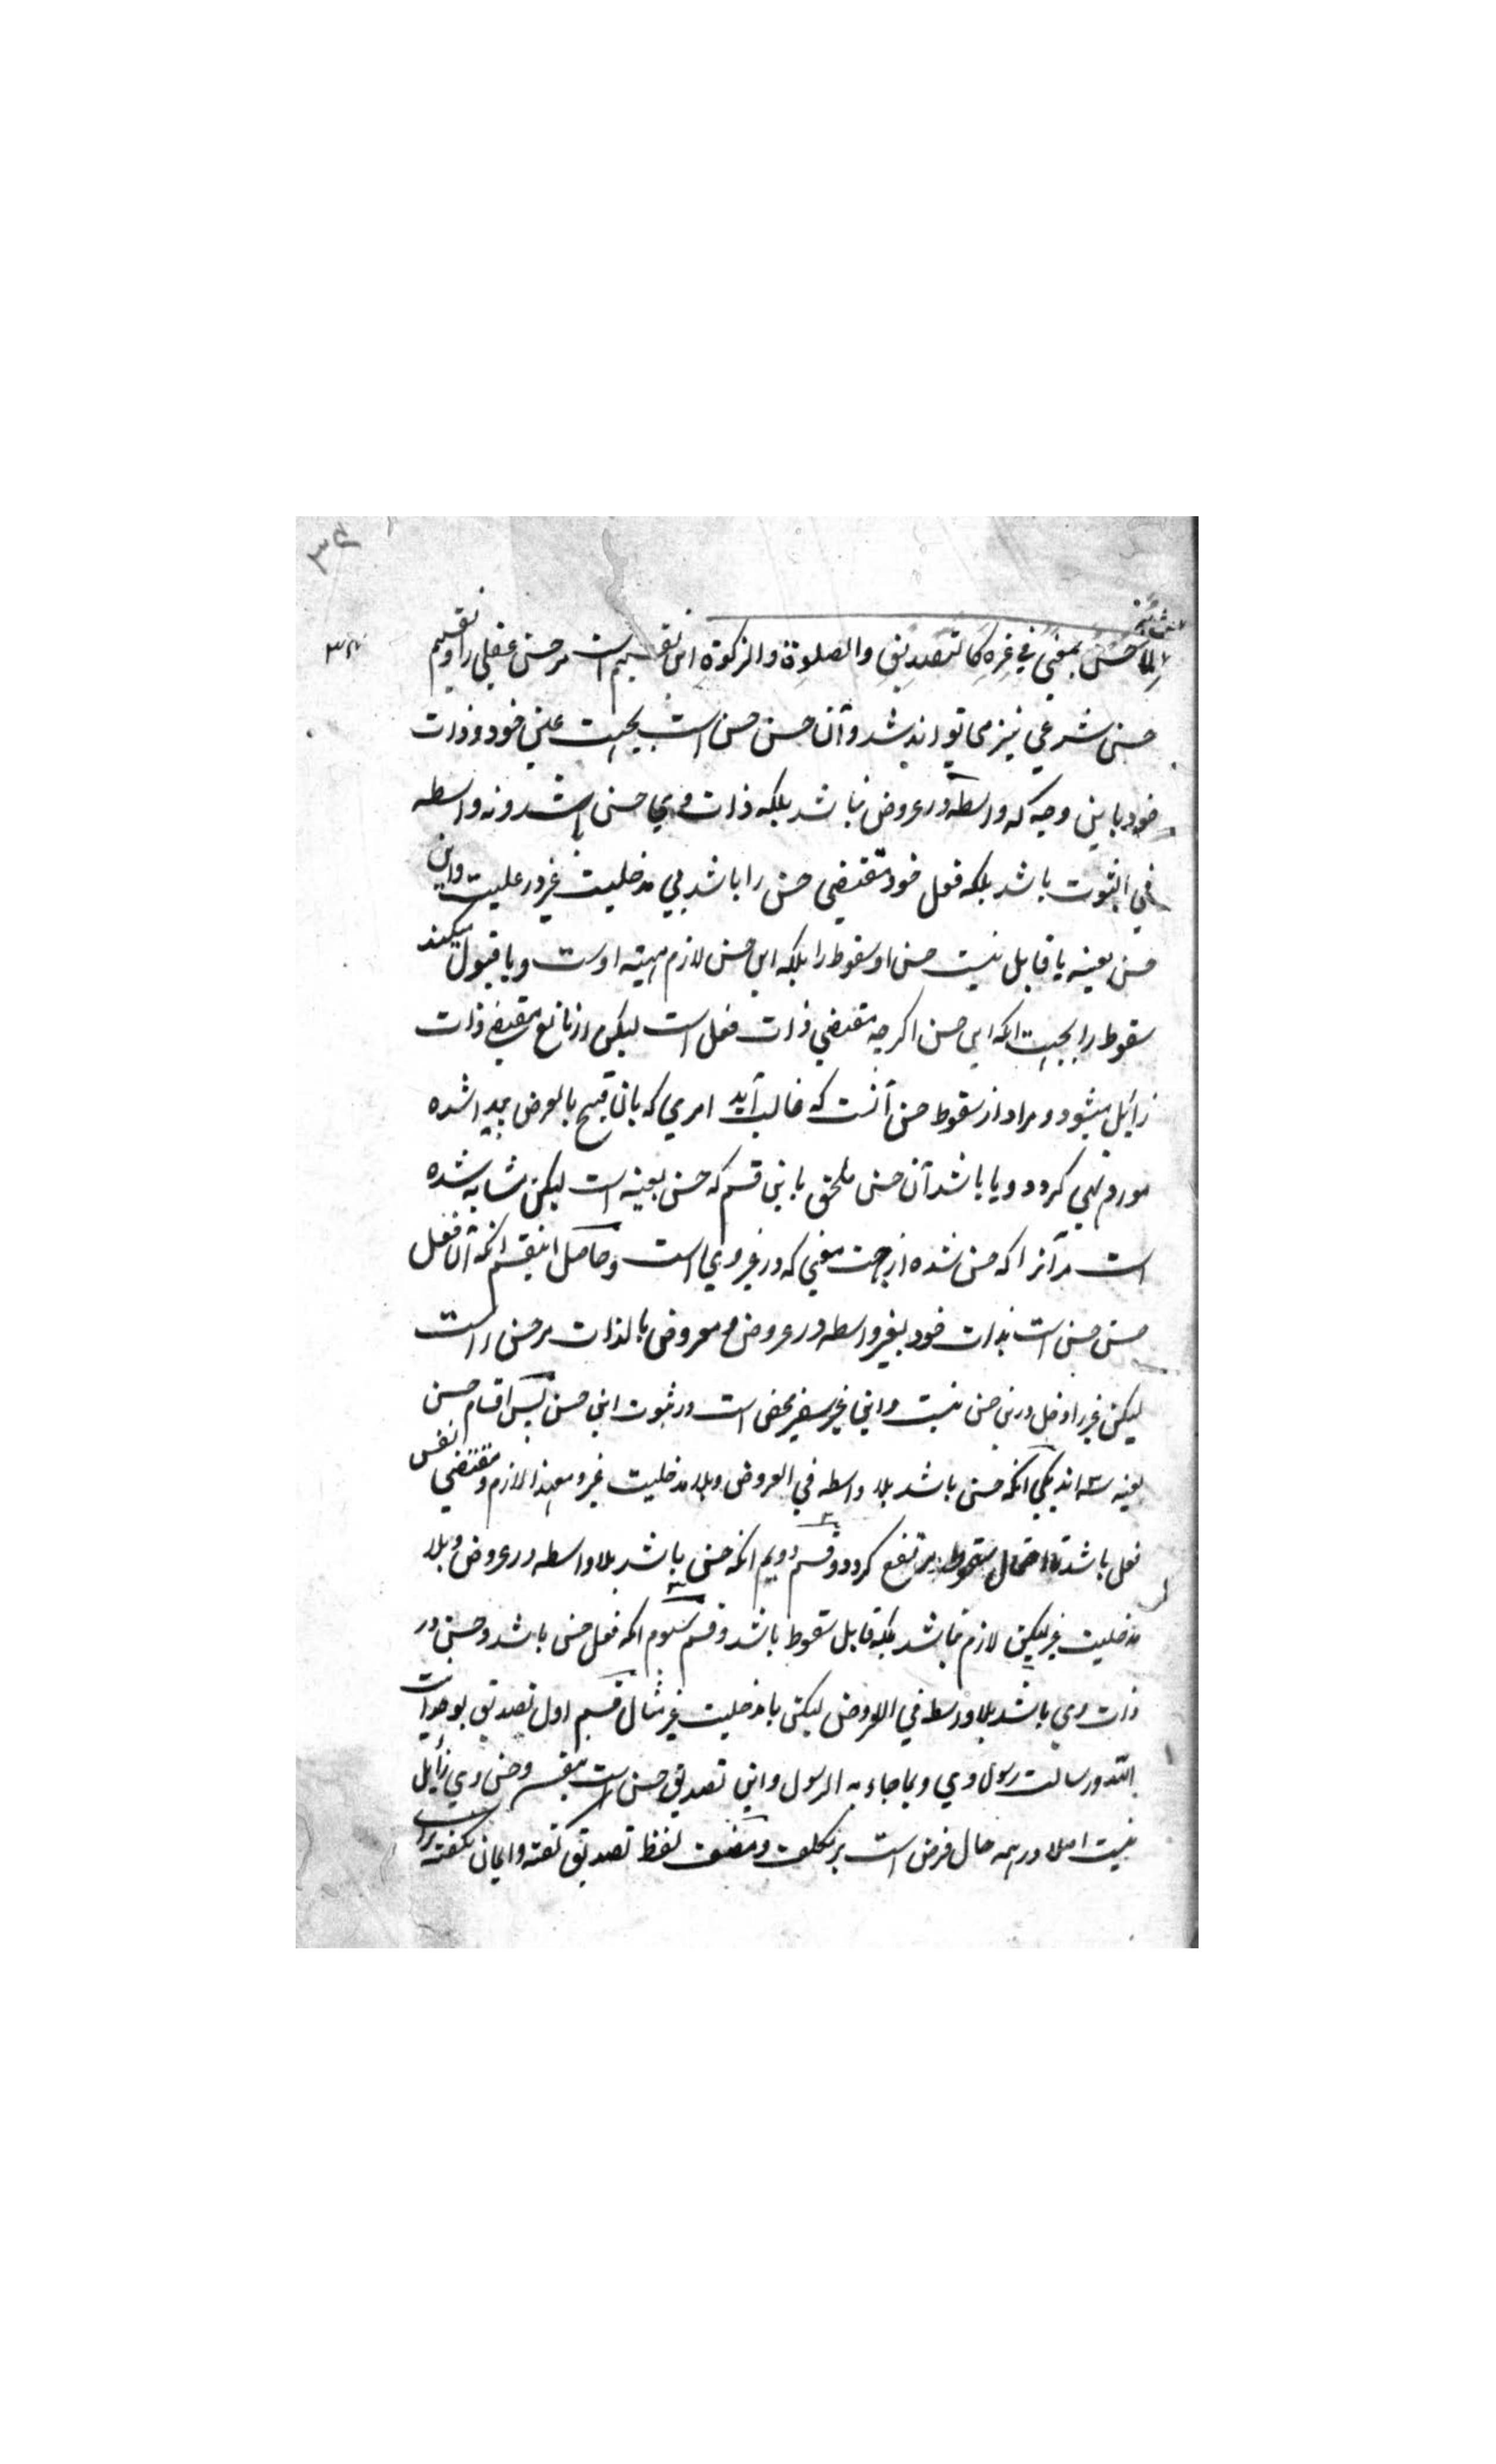 لما حسن بمعني في غيره كالتصديق والصلوة والزكوة اين تقسيم است مر حسن عقلي را و تقسيم
حسن شرعي نيز مي تواند شد و آن حسن حسن است بجهت عين خود و ذات
خود باين وجه كه واسطه در عروض نباشد بلكه ذات وي حسن باشد و نه واسطه
في الثبوت باشد بلكه فعل خود مقتضي حسن را باشد بي مدخليت غير در عليت و اين
حسن بعينه يا قابل نيست حسن او سقوط را بلكه اين حسن لازم مهيته اوست و يا قبول ميكند
سقوط را بجهت آنكه اين حسن اگرچه مقتضي ذات فعل است ليكن از مانع مقتضي ذات
زائل ميشود و مراد از سقوط حسن آنست كه غالب آيد امري كه بان قبح بالعرض پيدا شده
مورد نهي گردد و يا باشد آن حسن ملحق باين قسم كه حسن بعينه است ليكن مشابه شده
است مر آنرا كه حسن شده از جهت معني كه در غير وي است و حاصل اينقسم آنكه آن فعل
حسن حسن است بذات خود بغير واسطه در عروض و معروض بالذات مر حسن را است
ليكن غير را دخل درين حسن نيست و اين غير سفير محض است در ثبوت اين حسن پس اقسام حسن
بعينه سه اند يكي آنكه حسن باشد بلا واسطه في العروض و بلا مدخليت غير و معهذا لازم و مقتضي نفس
فعل باشد تا احتمال سقوط مرتفع گردد و قسم دويم آنكه حسن باشد بلا واسطه در عروض و بلا
مدخليت غير ليكن لازم نباشد بلكه قابل سقوط باشد و قسم سوم آنكه فعل حسن باشد و حسن در
ذات وي باشد بلا واسطه في العروض ليكن با مدخليت غير مثال قسم اول تصديق بوحدانيت
الله و رسالت رسول وي و بما جاء به الرسول و اين تصديق حسن است بنفسه و حسن وي زائل
نيست اصلا در همه حال فرض است بر مكلف و مصنف لفظ تصديق گفته و ايمان نگفته